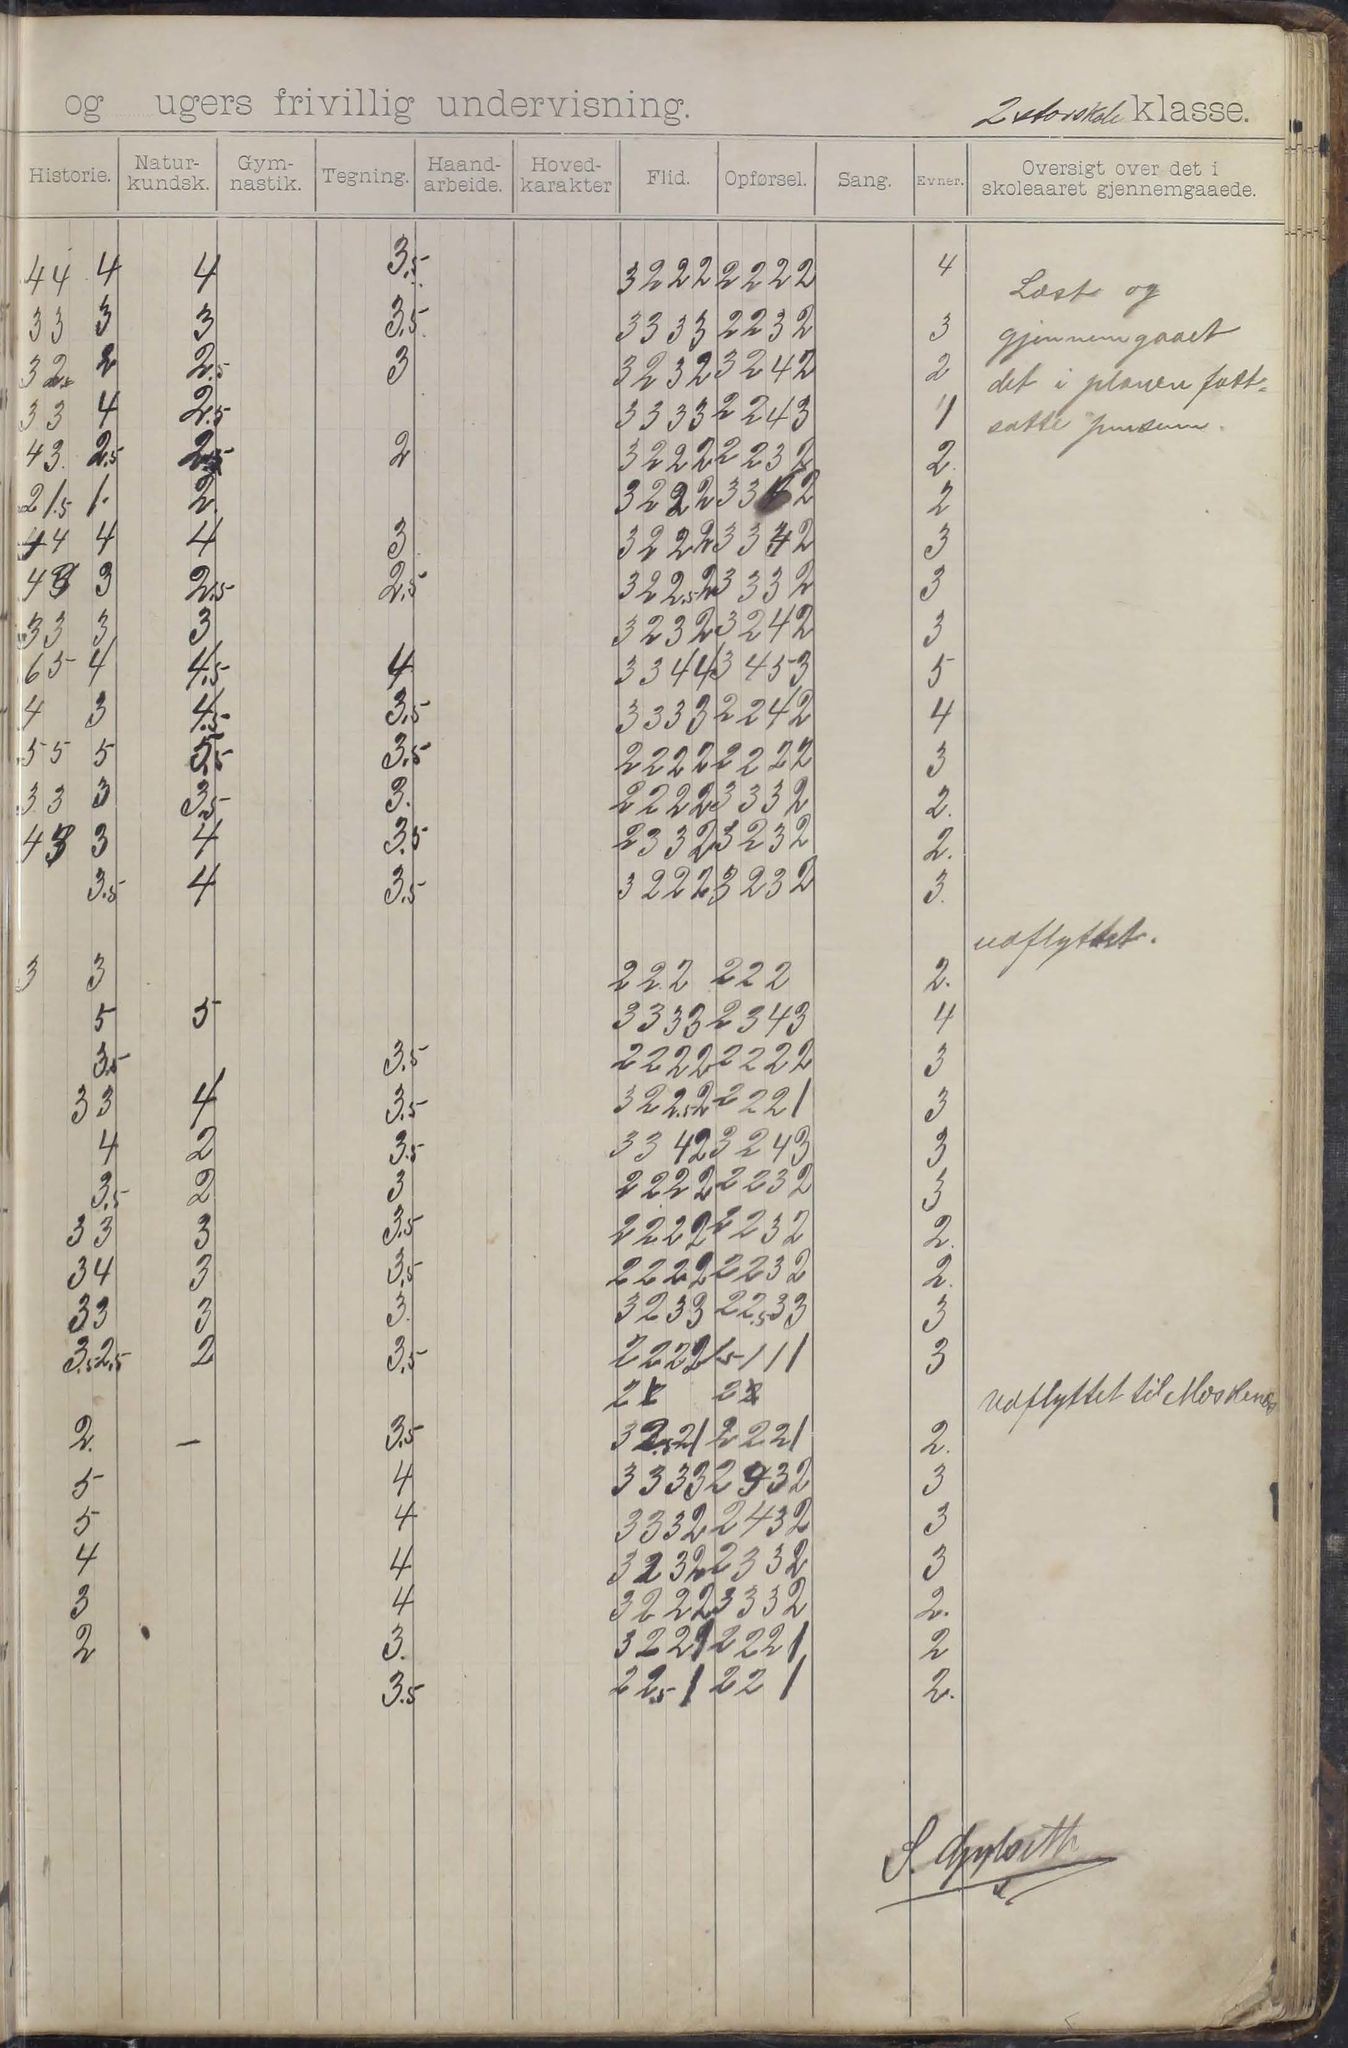 og ugers frivillig undervisning. 2 storskole klasse.
Historie. Natur-kundsk. Gym-nastik. Tegning. Haand-arbeide. Hoved-karakter Flid. Opførsel. Sang. Evner. Oversigt over det i skoleaaret gjennemgaaede.
44 4 4 3.5 3222 2222 4 Læst og
33 3 3 3.5 3333 2232 3 gjennemgaaet
32.5 2 2.5 3 3232 3242 2 det i planen fast=
33 4 2.5 3333 2243 4 satte pensum.
43. 2.5 2.5 2 3222 2232 2.
21.5 1. 2. 3222 33 2 2
44 4 4 3 3222 3342 3
43 3 2.5 2.5 3222.52 3332 3
33 3 3 3232 3242 3
65 4 4.5 4 3344 3453 5
4 3 4.5 3.5 3333 2242 4
55 5 5.5 3.5 2222 2222 3
33 3 3.5 3. 2222 3332 2.
43 3 4 3.5 2332 3232 2.
3.5 4 3.5 3222 3232 3.
udflyttet.
3 3 222 222 2.
5 5 3333 2343 4
3.5 3.5 2222 2222 3
33 4 3.5 3222.52 2221 3
4 2 3.5 3342 3243 3
3.5 2 3 2222 2232 3
33 3 3.5 2222 2232 2.
34 3 3.5 2222 2232 2.
33 3 3. 3233 22.533 3
3.52.5 2 3.5 2222 1.5111 3
22 22 Udflyttet til Moskenes
2. – 3.5 32.521 2221 2.
5 4 3333 2432 3
5 4 3332 2432 3
4 4 3232 2332 3
3 4 3222 3332 2.
2 3. 3221 2221 2
3.5 22.51 221 2.